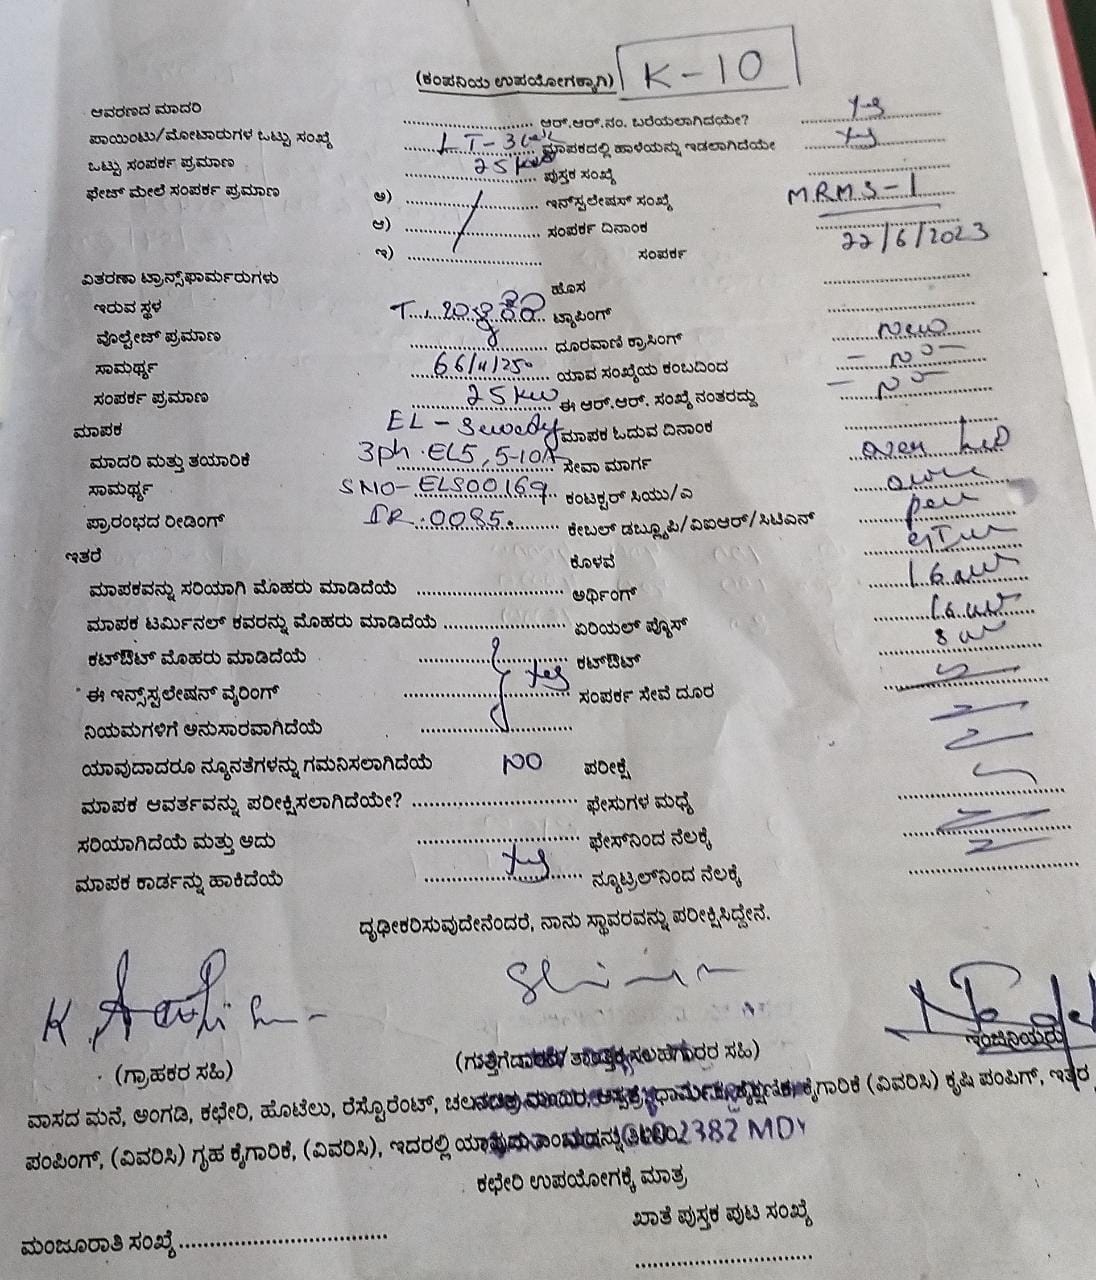 (ಕಂಪನಿಯ ಉಪಯೋಗಕ್ಕಾಗಿ) K-10
ಆವರಣದ ಮಾದರಿ ಆರ್.ಆರ್.ನಂ. ಬರೆಯಲಾಗಿದೆಯೇ? Yes
ಪಾಯಿಂಟು/ಮೋಟಾರುಗಳ ಒಟ್ಟು ಸಂಖ್ಯೆ LT-3 ಮಾಪಕದಲ್ಲಿ ಹಾಳೆಯನ್ನು ಇಡಲಾಗಿದೆಯೇ Yes
ಒಟ್ಟು ಸಂಪರ್ಕ ಪ್ರಮಾಣ 25 kw ಪುಸ್ತಕ ಸಂಖ್ಯೆ
ಫೇಜ್ ಮೇಲೆ ಸಂಪರ್ಕ ಪ್ರಮಾಣ ಅ) ಇನ್‌ಸ್ಟಲೇಷನ್ ಸಂಖ್ಯೆ MRMS-1
ಆ) ಸಂಪರ್ಕ ದಿನಾಂಕ 22/6/2023
ಇ) ಸಂಪರ್ಕ
ವಿತರಣಾ ಟ್ರಾನ್ಸ್‌ಫಾರ್ಮರುಗಳು ಹೊಸ
ಇರುವ ಸ್ಥಳ ಟ್ಯಾಪಿಂಗ್
ವೊಲ್ಟೇಜ್ ಪ್ರಮಾಣ ದೂರವಾಣಿ ಕ್ರಾಸಿಂಗ್ New
ಸಾಮರ್ಥ್ಯ 66/11/250 ಯಾವ ಸಂಖ್ಯೆಯ ಕಂಬದಿಂದ - No -
ಸಂಪರ್ಕ ಪ್ರಮಾಣ 25 kw ಈ ಆರ್.ಆರ್. ಸಂಖ್ಯೆ ನಂತರದ್ದು - No -
ಮಾಪಕ EL - Sewedy ಮಾಪಕ ಓದುವ ದಿನಾಂಕ
ಮಾದರಿ ಮತ್ತು ತಯಾರಿಕೆ 3ph. EL5, 5-10A ಸೇವಾ ಮಾರ್ಗ over
ಸಾಮರ್ಥ್ಯ SNO-ELS00169 ಕಂಟಕ್ಟರ್ ಸಿಯು/ಎ
ಪ್ರಾರಂಭದ ರೀಡಿಂಗ್ IR:0085. ಕೇಬಲ್ ಡಬ್ಲ್ಯೂಪಿ/ಎಐಆರ್/ಸಿಟಿಎನ್
ಇತರೆ ಕೊಳವೆ
ಮಾಪಕವನ್ನು ಸರಿಯಾಗಿ ಮೊಹರು ಮಾಡಿದೆಯೆ ಅರ್ಥಿಂಗ್
ಮಾಪಕ ಟರ್ಮಿನಲ್ ಕವರನ್ನು ಮೊಹರು ಮಾಡಿದೆಯೆ ಏರಿಯಲ್ ಫ್ಯೊಸ್
ಕಟ್‌ಔಟ್ ಮೊಹರು ಮಾಡಿದೆಯೆ ಕಟ್‌ಔಟ್
ಈ ಇನ್ಸ್‌ಸ್ಟಲೇಷನ್ ವೈರಿಂಗ್ Yes ಸಂಪರ್ಕ ಸೇವೆ ದೂರ
ನಿಯಮಗಳಿಗೆ ಅನುಸಾರವಾಗಿದೆಯೆ
ಯಾವುದಾದರೂ ನ್ಯೂನತೆಗಳನ್ನು ಗಮನಿಸಲಾಗಿದೆಯೆ NO ಪರೀಕ್ಷೆ
ಮಾಪಕ ಆವರ್ತವನ್ನು ಪರೀಕ್ಷಿಸಲಾಗಿದೆಯೇ? ಫೇಸುಗಳ ಮಧ್ಯೆ
ಸರಿಯಾಗಿದೆಯೆ ಮತ್ತು ಅದು ಫೇಸ್‌ನಿಂದ ನೆಲಕ್ಕೆ
ಮಾಪಕ ಕಾರ್ಡನ್ನು ಹಾಕಿದೆಯೆ Yes ನ್ಯೂಟ್ರಲ್‌ನಿಂದ ನೆಲಕ್ಕೆ
ದೃಢೀಕರಿಸುವುದೇನೆಂದರೆ, ನಾನು ಸ್ಥಾವರವನ್ನು ಪರೀಕ್ಷಿಸಿದ್ದೇನೆ.
(ಗ್ರಾಹಕರ ಸಹಿ) (ಗುತ್ತಿಗೆದಾರರು/ ತಾಂತ್ರಿಕ ಸಲಹೆಗಾರರ ಸಹಿ) ಇಂಜಿನಿಯರು
ವಾಸದ ಮನೆ, ಅಂಗಡಿ, ಕಛೇರಿ, ಹೊಟೆಲು, ರೆಸ್ಟೊರೆಂಟ್, ಕೈಗಾರಿಕೆ (ವಿವರಿಸಿ) ಕೃಷಿ ಪಂಪಿಗ್, ಇತರ
ಪಂಪಿಂಗ್, (ವಿವರಿಸಿ) ಗೃಹ ಕೈಗಾರಿಕೆ, (ವಿವರಿಸಿ), ಇದರಲ್ಲಿ 2382 MDY
ಕಛೇರಿ ಉಪಯೋಗಕ್ಕೆ ಮಾತ್ರ
ಖಾತೆ ಪುಸ್ತಕ ಪುಟ ಸಂಖ್ಯೆ
ಮಂಜೂರಾತಿ ಸಂಖ್ಯೆ